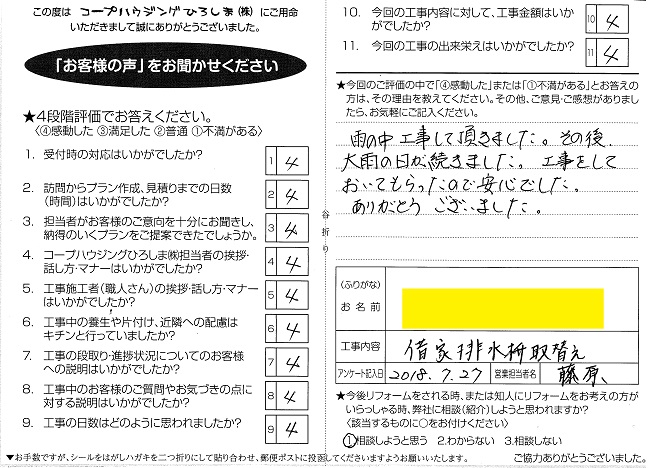 この度は コープハウジングひろしま(株) にご用命
いただきまして誠にありがとうございました。
「お客様の声」をお聞かせください
★4段階評価でお答えください。
〈④感動した ③満足した ②普通 ①不満がある〉
1. 受付時の対応はいかがでしたか? 1 4
2. 訪問からプラン作成、見積りまでの日数
(時間)はいかがでしたか? 2 4
3. 担当者がお客様のご意向を十分にお聞きし、
納得のいくプランをご提案できたでしょうか。 3 4
4. コープハウジングひろしま㈱担当者の挨拶・
話し方・マナーはいかがでしたか? 4 4
5. 工事施工者(職人さん)の挨拶・話し方・マナー
はいかがでしたか? 5 4
6. 工事中の養生や片付け、近隣への配慮は
キチンと行っていましたか? 6 4
7. 工事の段取り・進捗状況についてのお客様
への説明はいかがでしたか? 7 4
8. 工事中のお客様のご質問やお気づきの点に
対する説明はいかがでしたか? 8 4
9. 工事の日数はどのように思われましたか? 9 4
▼お手数ですが、シールをはがしハガキを二つ折りにして貼り合わせ、郵便ポストに投函してくださいますようお願いいたします。
谷折り
10. 今回の工事内容に対して、工事金額はいか
がでしたか? 10 4
11. 今回の工事の出来栄えはいかがでしたか? 11 4
★今回のご評価の中で「④感動した」または「①不満がある」とお答えの
方は、その理由を教えてください。その他、ご意見・ご感想がありまし
たら、お気軽にご記入ください。
雨の中工事して頂きました。その後
大雨の日が続きました。工事をして
おいてもらったので安心でした。
ありがとうございました。
(ふりがな)
お名前
工事内容 借家排水桝取替え
アンケート記入日 2018.7.27 営業担当者名 藤原
★今後リフォームをされる時、または知人にリフォームをお考えの方が
いらっしゃる時、弊社に相談(紹介)しようと思われますか?
〈該当するものに○をお付けください〉
①相談しようと思う 2.わからない 3.相談しない
ご協力ありがとうございました。